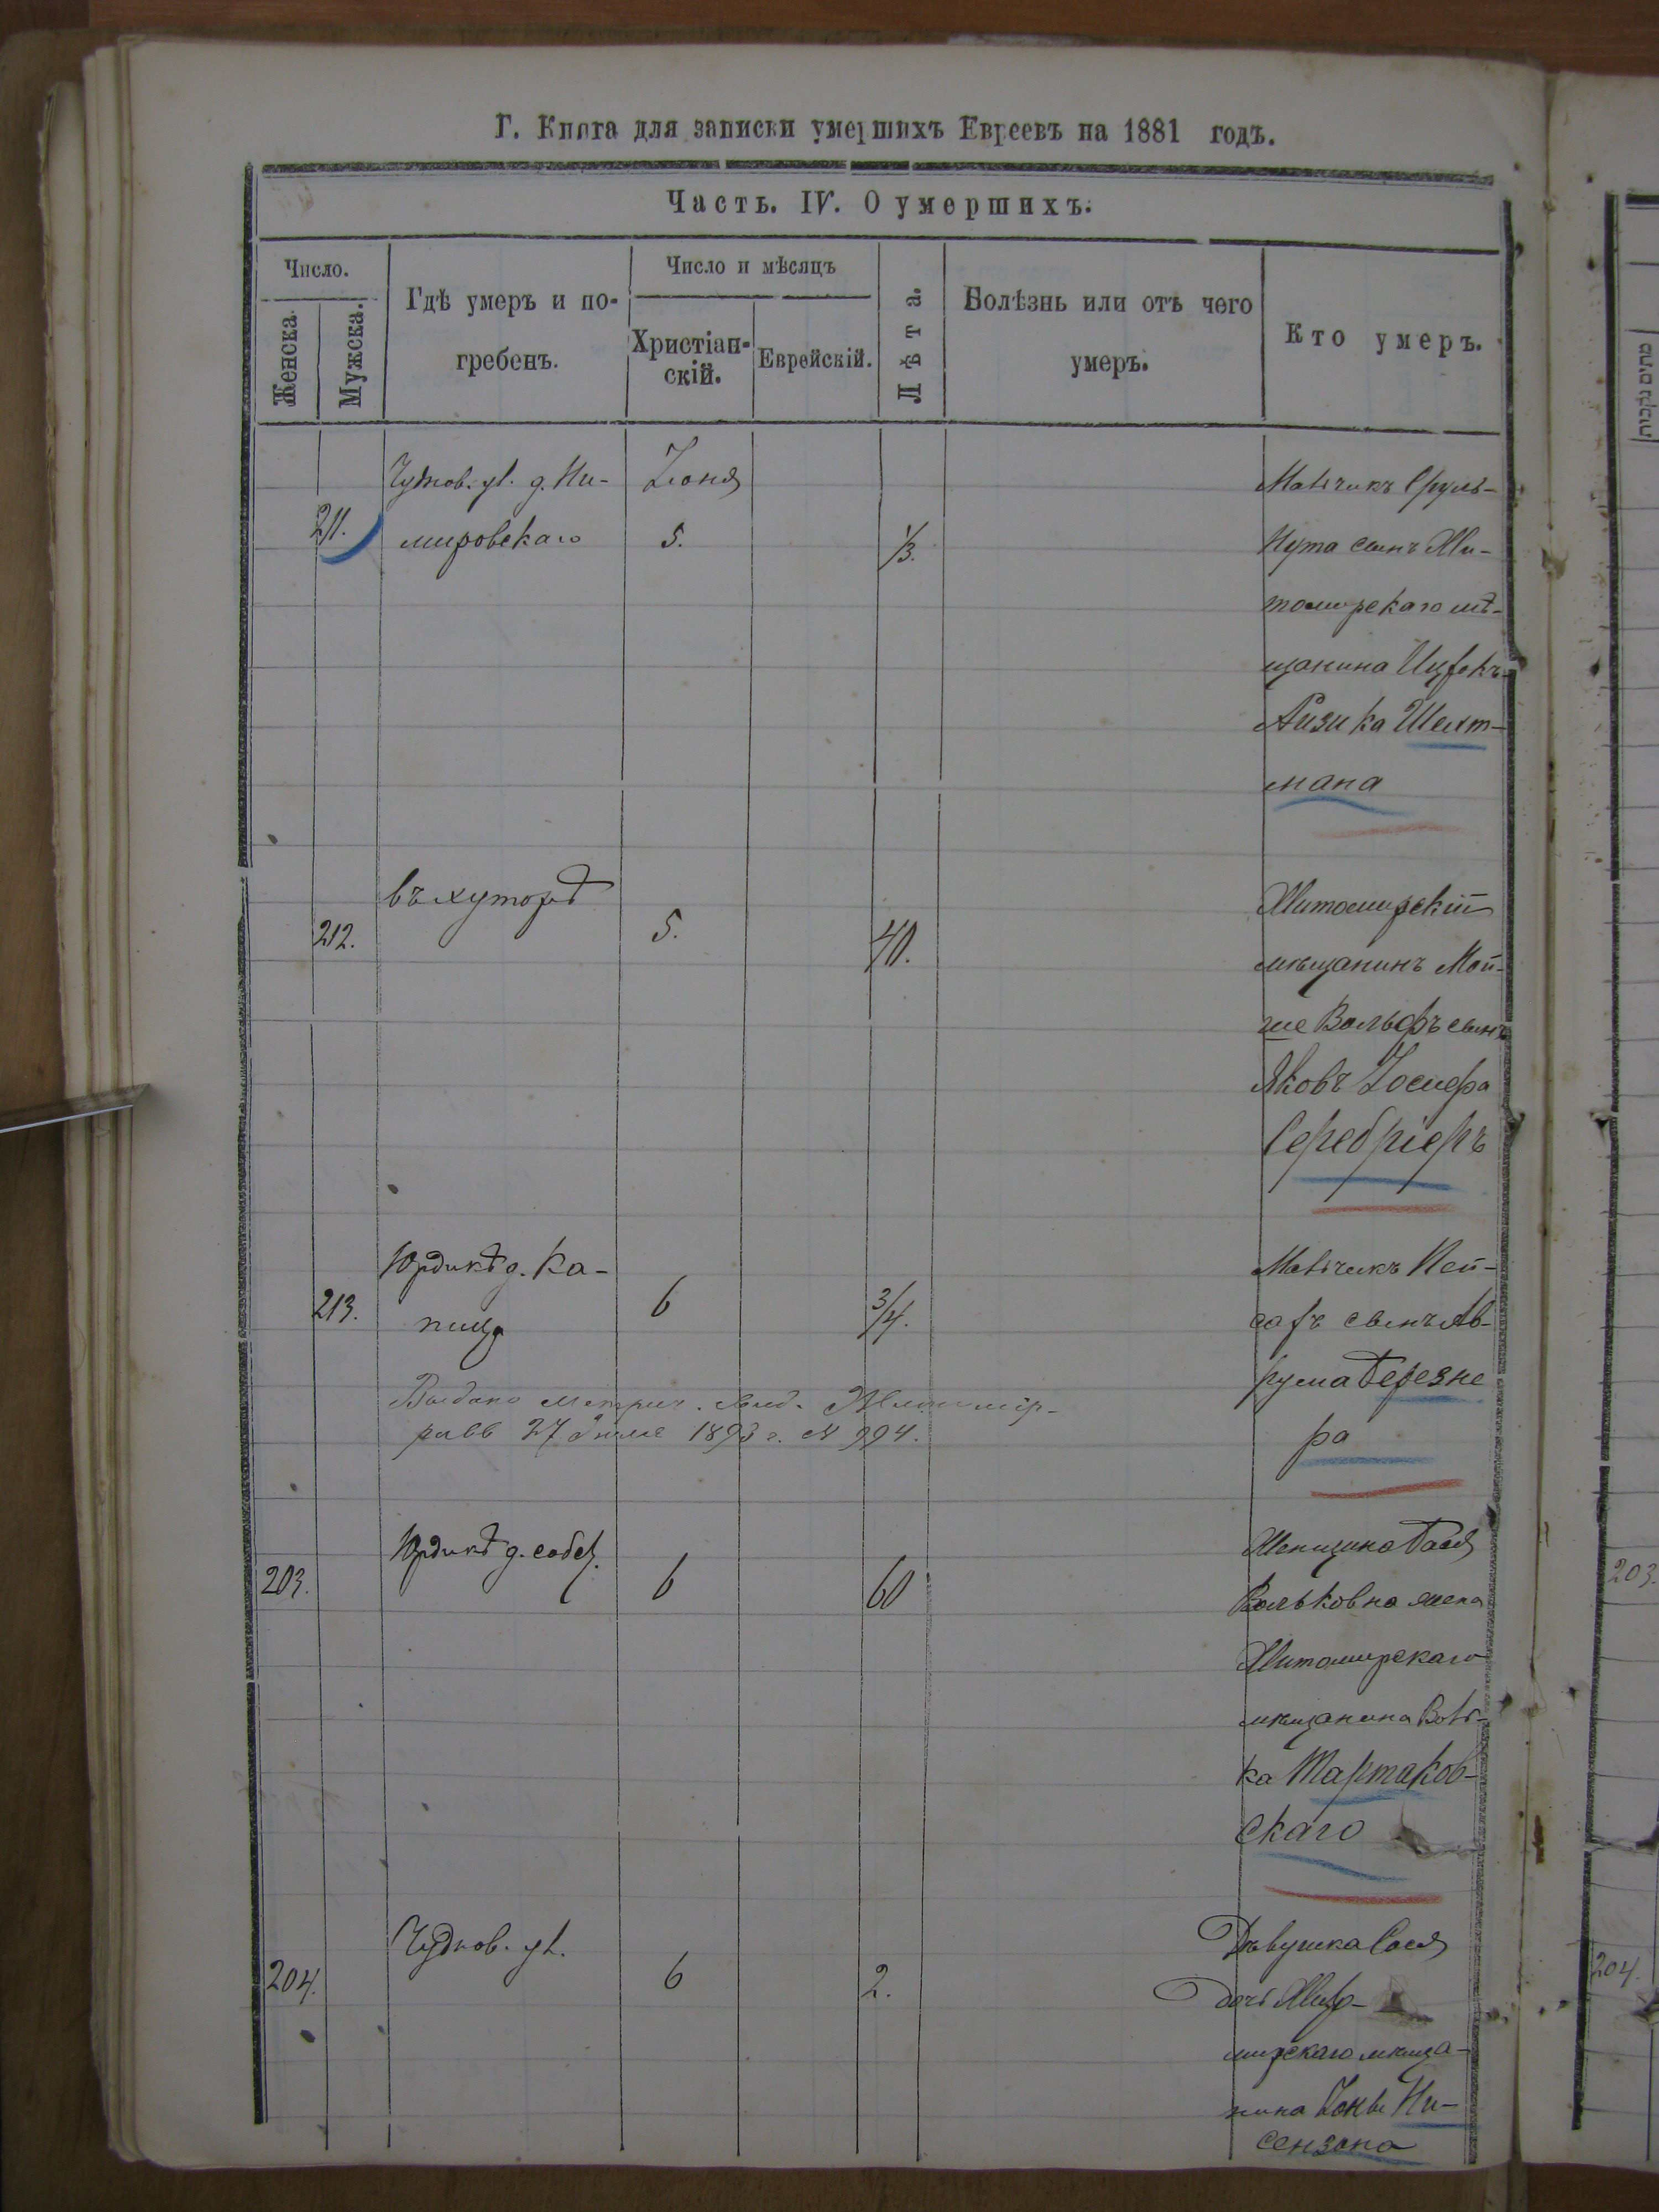 Г. Книга для записки умершихъ Евреевъ на 1881 годъ.
Часть. IV. О умершихъ.
Число.
Женска.
Мужска.
Гдѣ умеръ и по-
гребенъ.
Число и мѣсяцъ
Христіан-
скій.
Еврейскій.
Лѣта.
Болѣзнь или отъ чего
умеръ.
Кто умеръ.
Чуднов. ул. д. Ни-
мировскаго
211.
Іюня
5.
1/3.
Мальчикъ Сруль-
Нута сынъ Жи-
томирскаго мѣ-
щанина Ицекъ-
Айзика Шехт-
мана
въ хуторѣ
212.
5.
40.
Житомирскій
мѣщанинъ Мой-
ше Вольфъ сынъ
Яковъ Іосифа
Серебріеръ
Юридикѣ д. Ка-
пица
213.
6
3/4.
Мальчикъ Пей-
сахъ сынъ Ав-
рума Березне
ра
Выдано метрич. свид. Житомір-
равв 27 1893 г. № 994.
Юридикѣ д. собст.
203.
6
60
Женщина Бася
Вольковна жена
Житомирскаго
мѣщанина Воль-
ка Тартаков-
скаго
203.
Чуднов. ул.
204.
6
2.
Дѣвушка Сося
дочь Жито-
мирскаго мѣща-
нина Іоны Ни-
сензона
204.